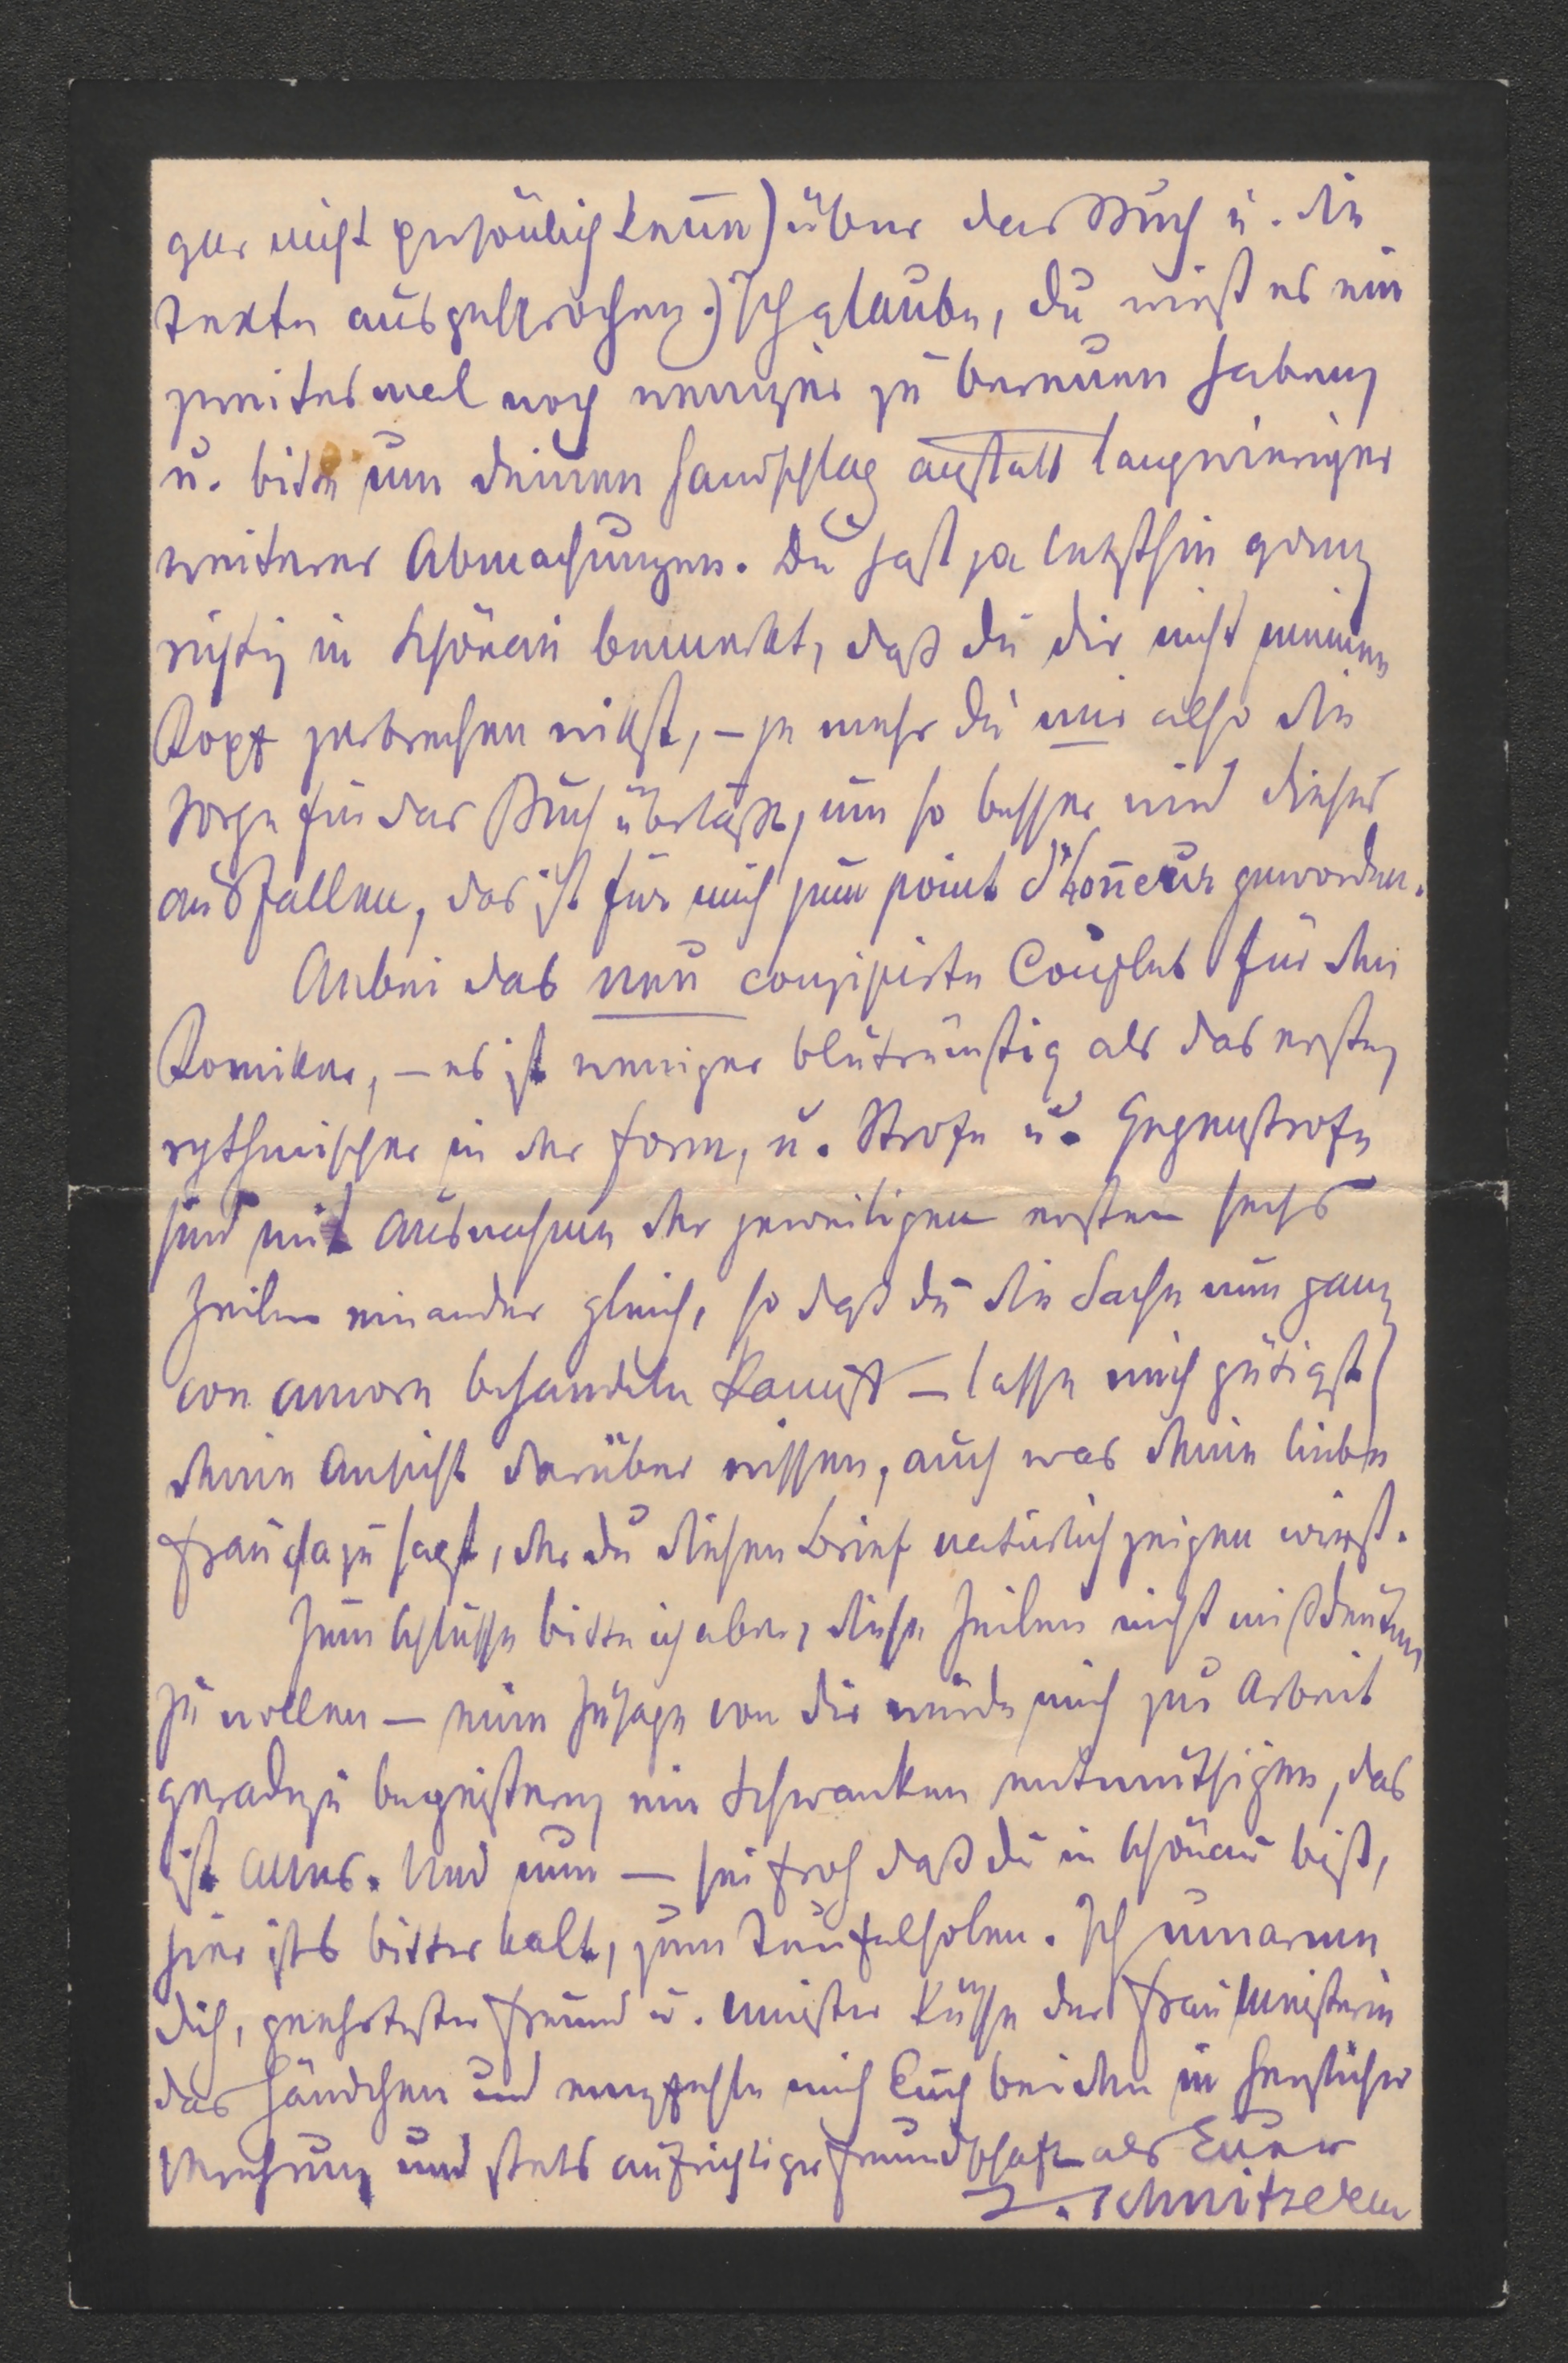 gar nicht persönlich kenne) über das Buch u. die
Texte ausgesprochen.) Ich glaube, du wirst es ein
zweites mal noch weniger zu bereuen haben,
u. bitte um deinen Handschlag anstatt langwieriger
weiterer Abmachungen. Du hast ja letzthin ganz
richtig in Schönau bemerkt, daß du dir nicht meinen
Kopf zerbrechen willst, – je mehr du mir also die
Sorge für das Buch überläßt, um so besser wird dieses
ausfallen, das ist für mich zum point d'honneur geworden.
Anbei das neu conzipirte Couplet für den
Komiker, – es ist weniger blutrünstig als das erste,
rythmischer in der Form, u. Strofe u. Gegenstrofe
sind mit Ausnahme der jeweiligen ersten sechs
Zeilen einander gleich, so daß du die Sache nun ganz
con amore behandeln kannst – lasse mich gütigst
deine Ansicht darüber wissen, auch was deine liebe
Frau dazu sagt, der du diesen Brief natürlich zeigen wirst.
Zum Schlusse bitte ich aber, diese Zeilen nicht mißdeuten
zu wollen – eine Zusage von dir würde mich zur Arbeit
geradezu begeistern, ein Schwanken entmuthigen, das
ist alles. Und nun – sei froh daß du in Schönau bist,
hier ists bitter kalt, zum Teufelholen. Ich umarme
dich, geehrtester Freund u. Meister küsse der Frau Meisterin
das Händchen und empfehle mich Euch beiden in herzlicher
Verehrung und stets aufrichtiger Freundschaft als Euer
I. Schnitzer